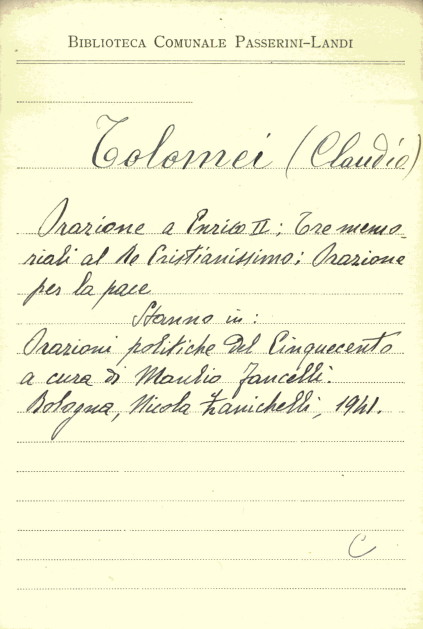 BIBLIOTECA COMUNALE PASSERINI-LANDI
Tolomei (Claudio)
Orazione a Enrico II; Tre memo-
riali al Re Cristianissimo; Orazione
per la pace
Stanno in:
Orazioni politiche del Cinquecento
a cura di Manlio Fancelli.
Bologna, Nicola Zanichelli, 1941.
C